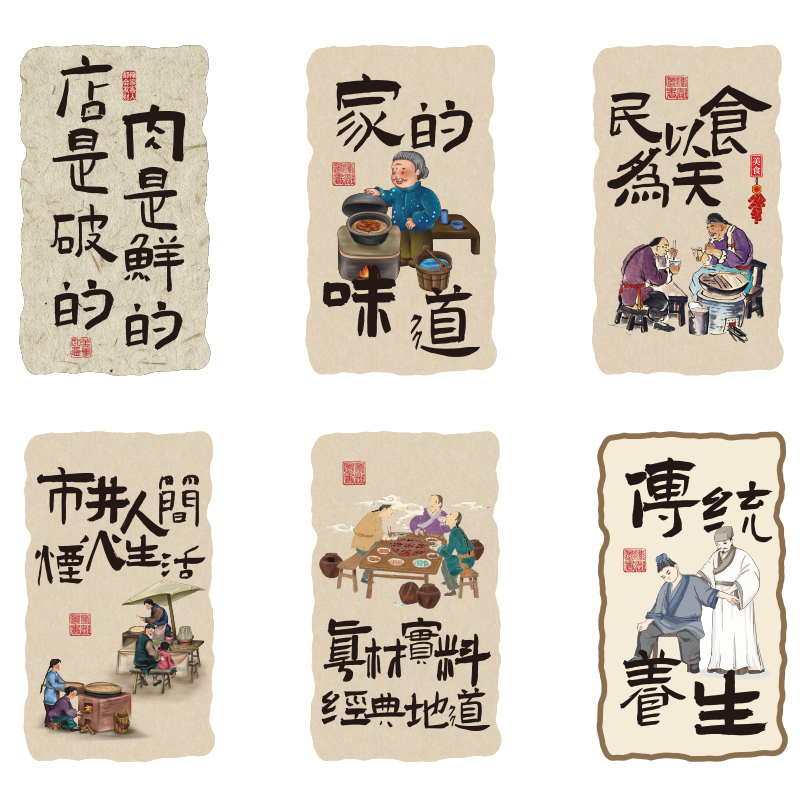 店是破的
肉是鮮的
家的
味道
民以食
為天
美食
市井人間
煙火生活
眞材實料
經典地道
傳統
養生